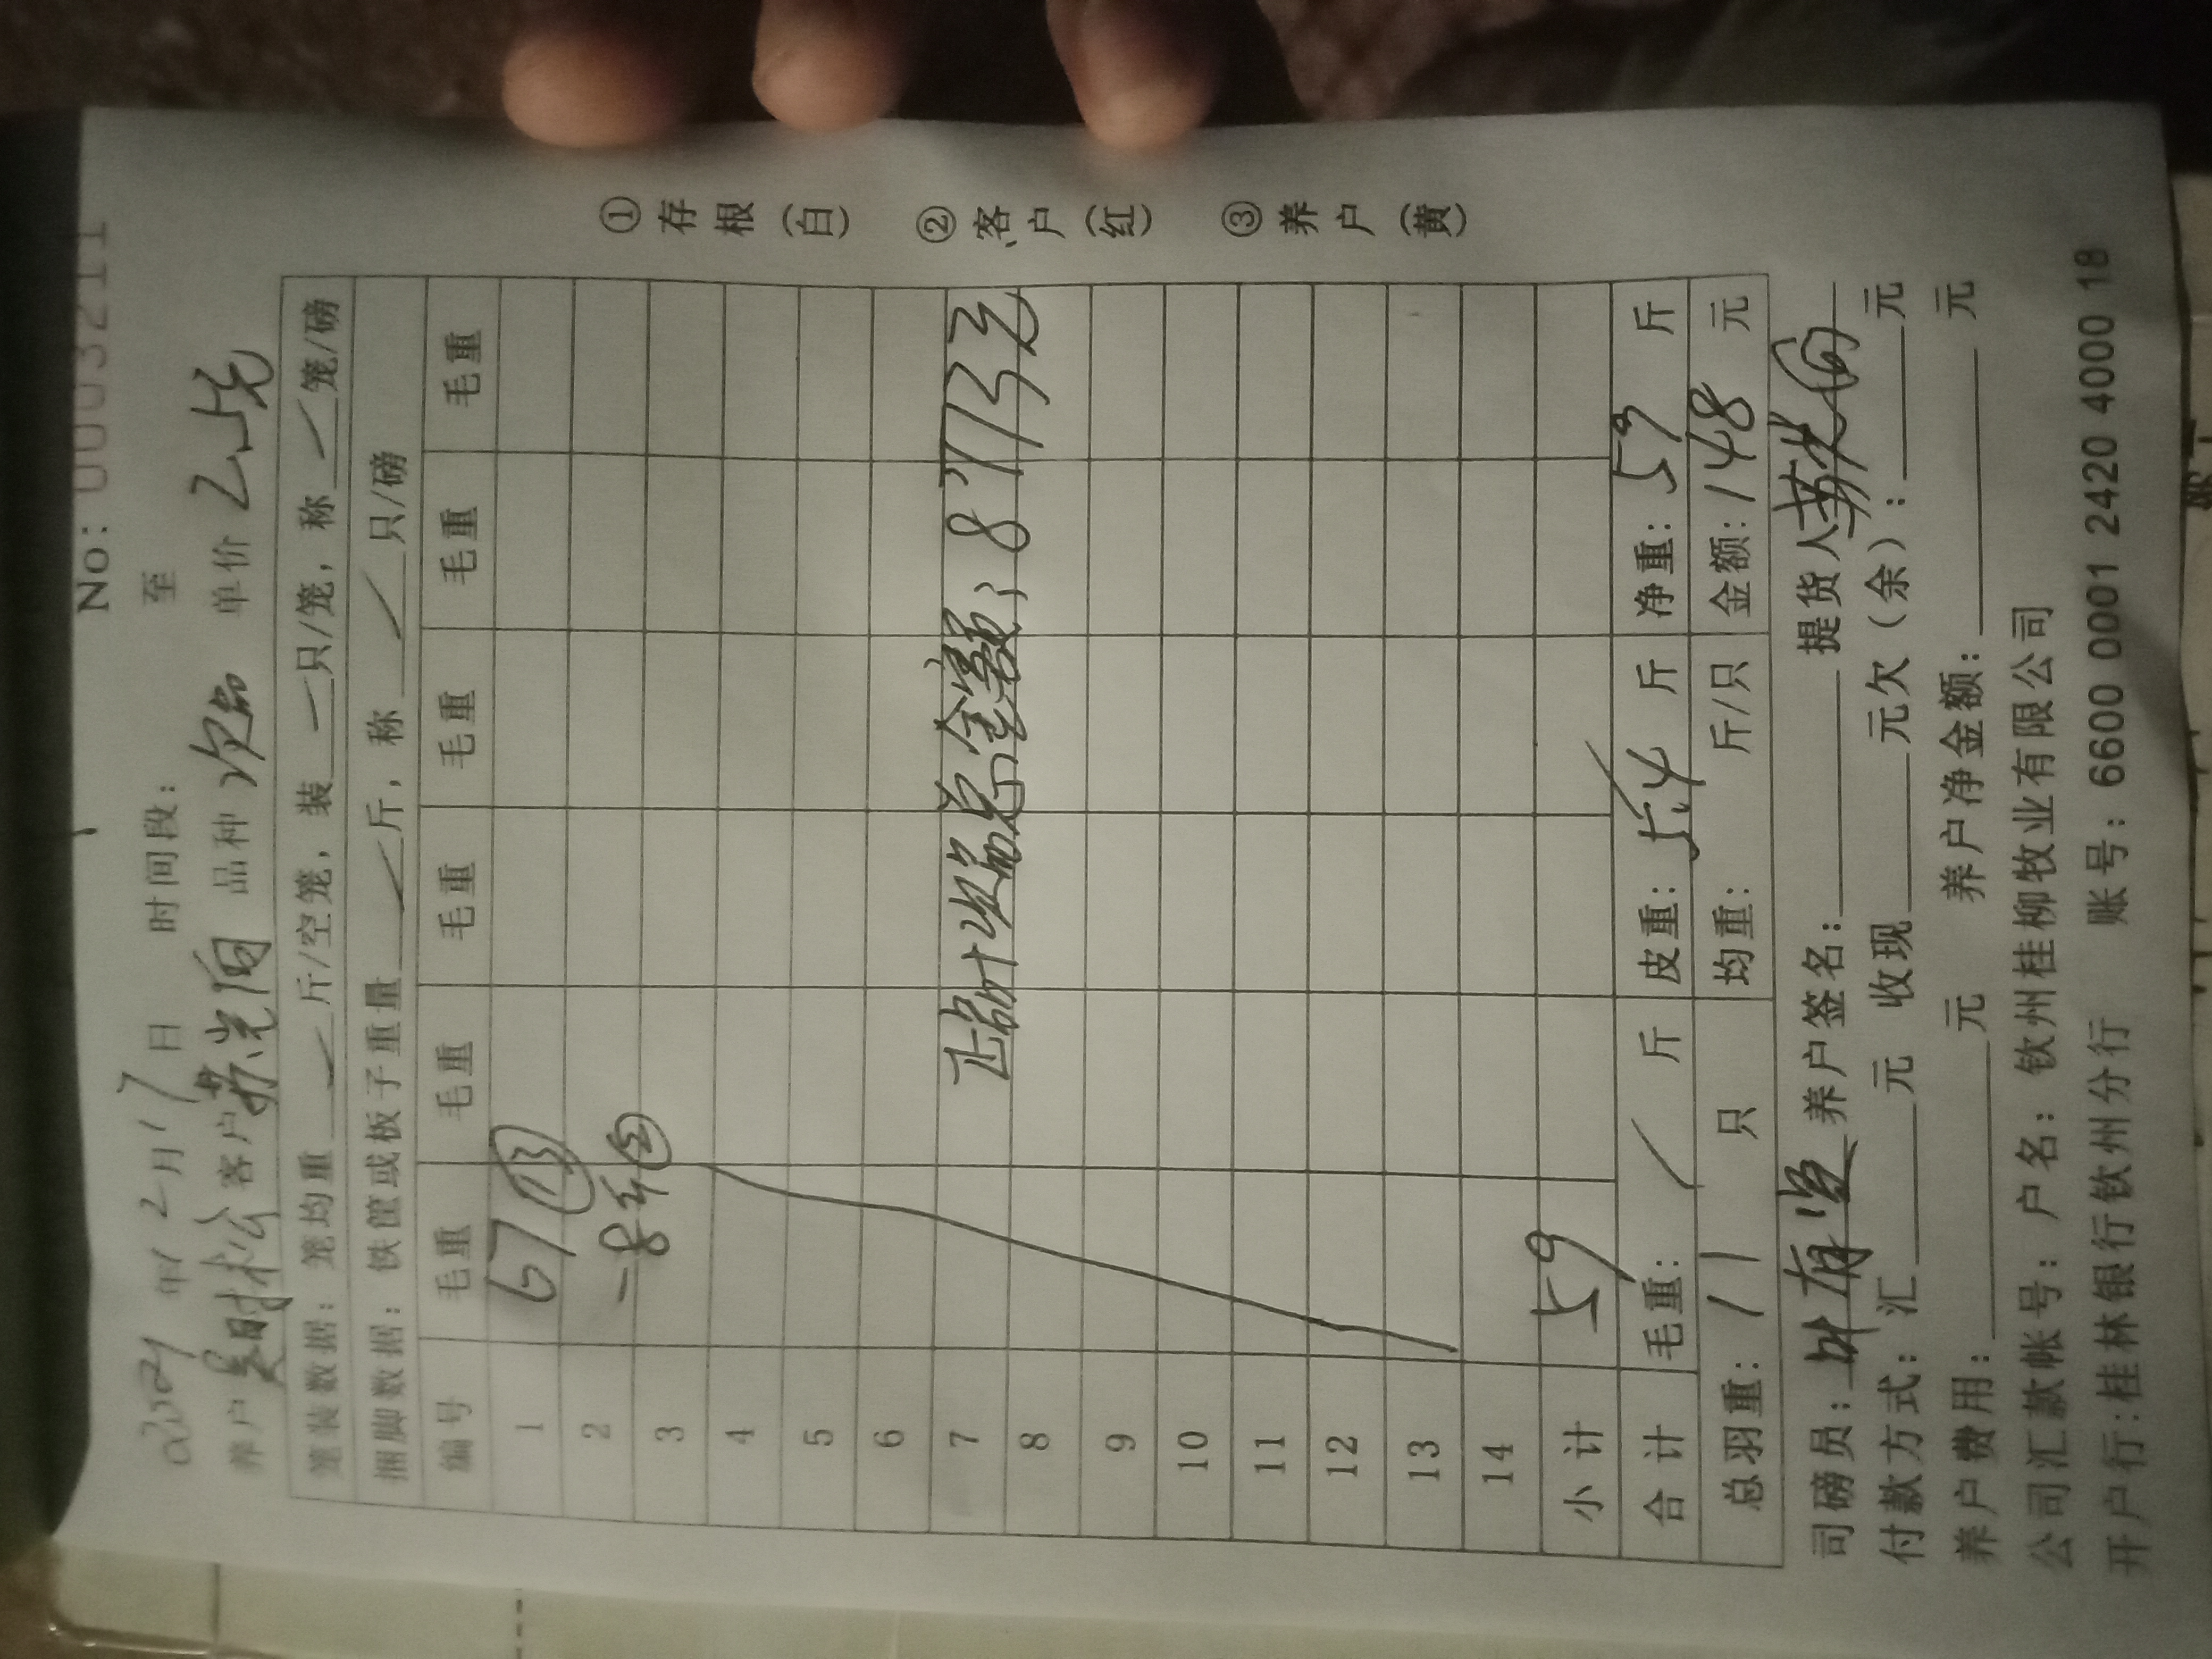 No: 0003211
2021年12月17日 时间段: 至
养户 吴时松 客户 苏光伯 品种 次品 单价 2.5元
笼装数据: 笼均重 斤/空笼, 装 只/笼, 称 笼/磅
捆脚数据: 铁筐或板子重量 斤, 称 只/磅
编号 毛重 毛重 毛重 毛重 毛重 毛重
1 67 ⑬
2 -8
3
4
5
6
7
正品+次品总金额: 8713元
8
9
10
11
12
13
14
小计 59
合计 毛重: 斤 皮重: 斤 净重: 59 斤
总羽重: 11 只 均重: 斤/只 金额: 148 元
司磅员: 养户签名: 提货人
付款方式: 汇 元 收现 元欠(余): 元
养户费用: 元 养户净金额: 元
公司汇款帐号: 户名: 钦州桂柳牧业有限公司
开户行:桂林银行钦州分行 账号: 6600 0001 2420 4000 18
①存根(白) ②客户(红) ③养户(黄)